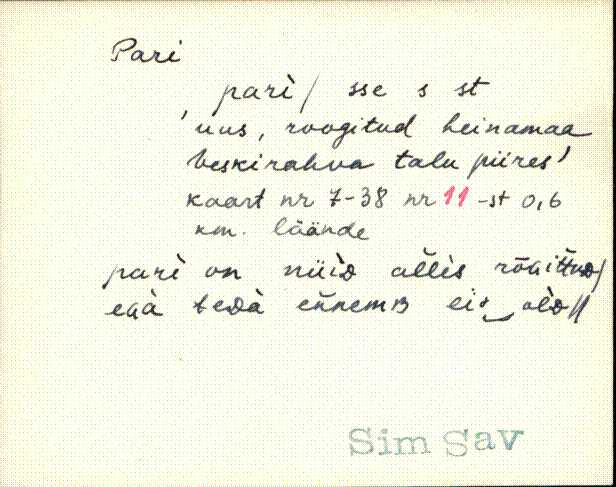 Pari
parì/ sse s st
'uus, roogitud heinamaa
veskirahva talu piires'
kaart nr 7-38 nr 11 -st 0,6
km. läände
parì on nüid allès
egà tedà ennemB eis olD//
Sim Sav